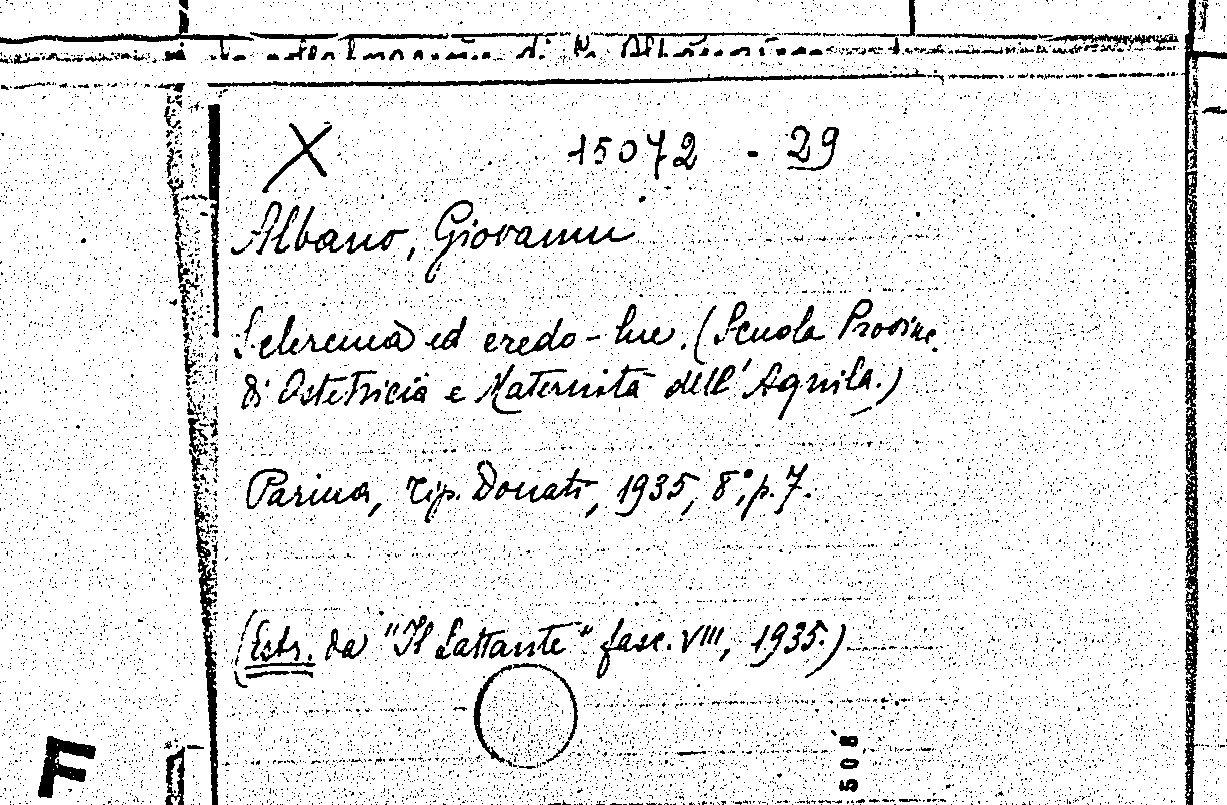 X 15072 - 29
Albano, Giovanni
Sclerema ed eredo-lue. (Scuola Provinc.
di Ostetricia e Maternità dell'Aquila.)
Parma, Tip. Donati, 1935, 8°, p. 7.
(Estr. da "Il Lattante" fasc. VIII, 1935.)
508
F